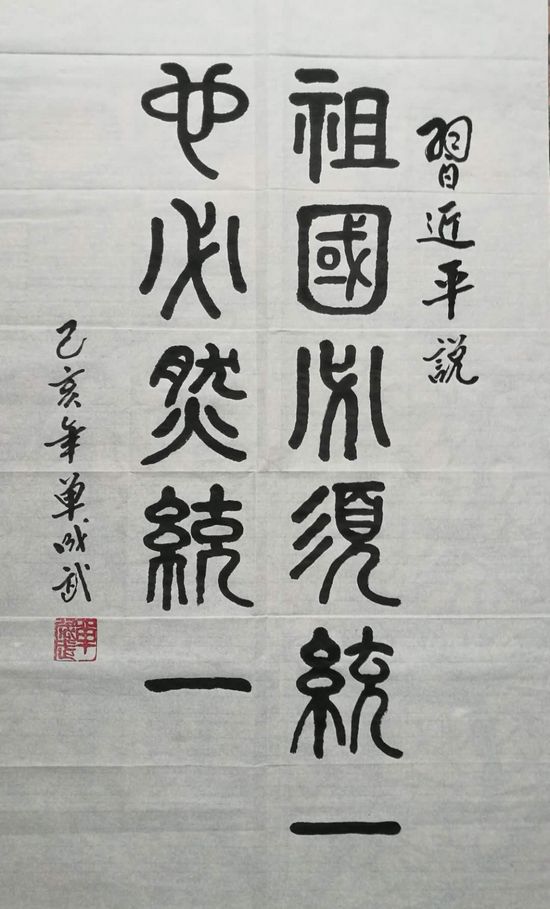 習近平説
祖國必須統一
也必然統一
己亥年单成武